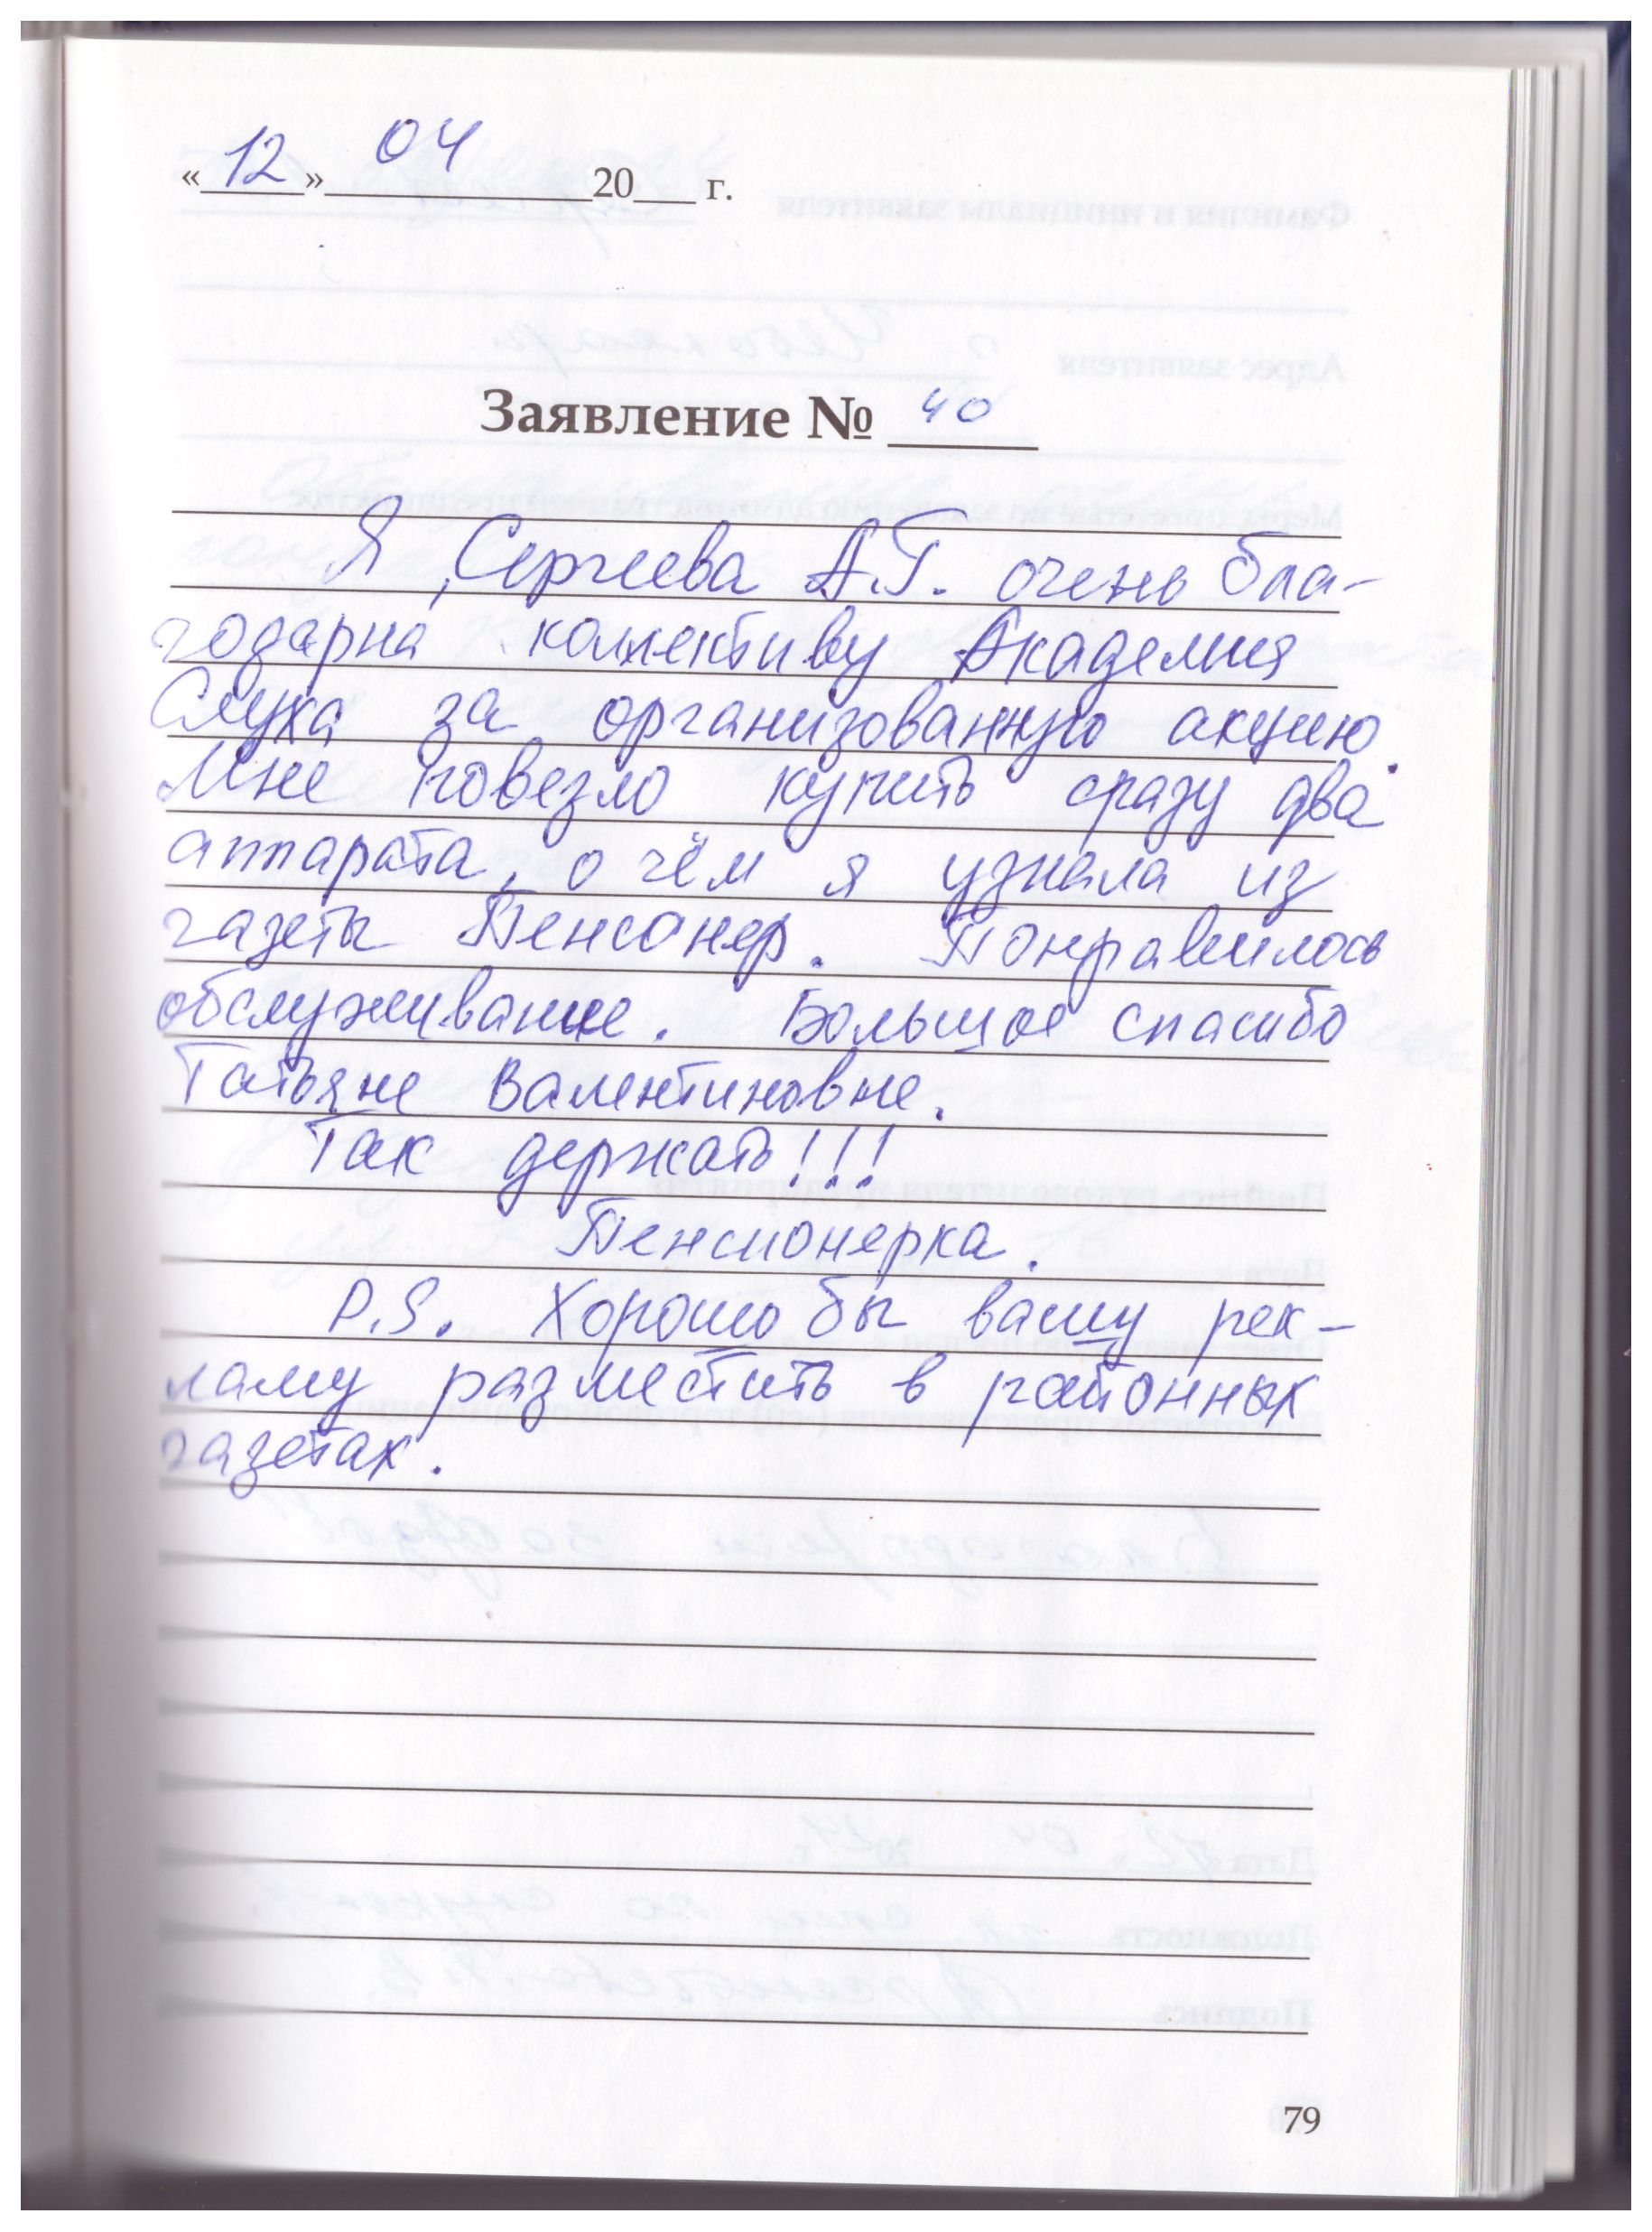 «12» 04 20___ г.
Заявление № 40
Я, Сергеева А.Г. очень бла-
годарна коллективу Академия
Слуха за организованную акцию.
Мне повезло купить сразу два
аппарата, о чём я узнала из
газеты Пенсонер. Понравилось
обслуживание. Большое спасибо
Татьяне Валентиновне.
Так держать!!!
Пенсионерка.
P.S. Хорошо бы вашу рек-
ламу разместить в районных
газетах.
79